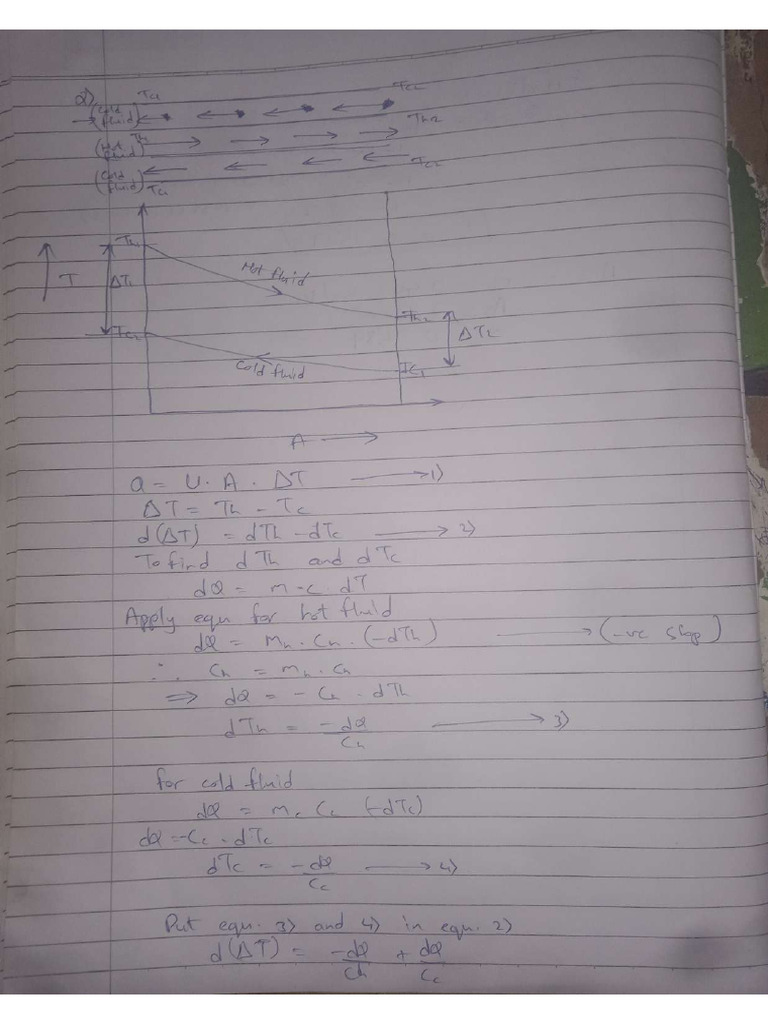 2)
Tc1 Tc2
(cold fluid)
Th1 Th2
(Hot fluid)
Tc2
(cold fluid) Tc1
Th1
T ΔT1 Hot fluid
Th2
Tc2 ΔT2
Cold fluid Tc1
A →
Q = U. A. ΔT → 1)
ΔT = Th - Tc
d(ΔT) = dTh - dTc → 2)
To find dTh and dTc
dQ = m·c dT
Apply equn for hot fluid
dQ = Mh · Ch · (-dTh) → (-ve slop)
∴ Ch = mh · Ch
⇒ dQ = - Ch · dTh
dTh = -dQ/Ch → 3)
for cold fluid
dQ = mc Cc (-dTc)
dQ = -Cc · dTc
dTc = -dQ/Cc → 4)
Put equn. 3) and 4) in equn. 2)
d(ΔT) = -dQ/Ch + dQ/Cc